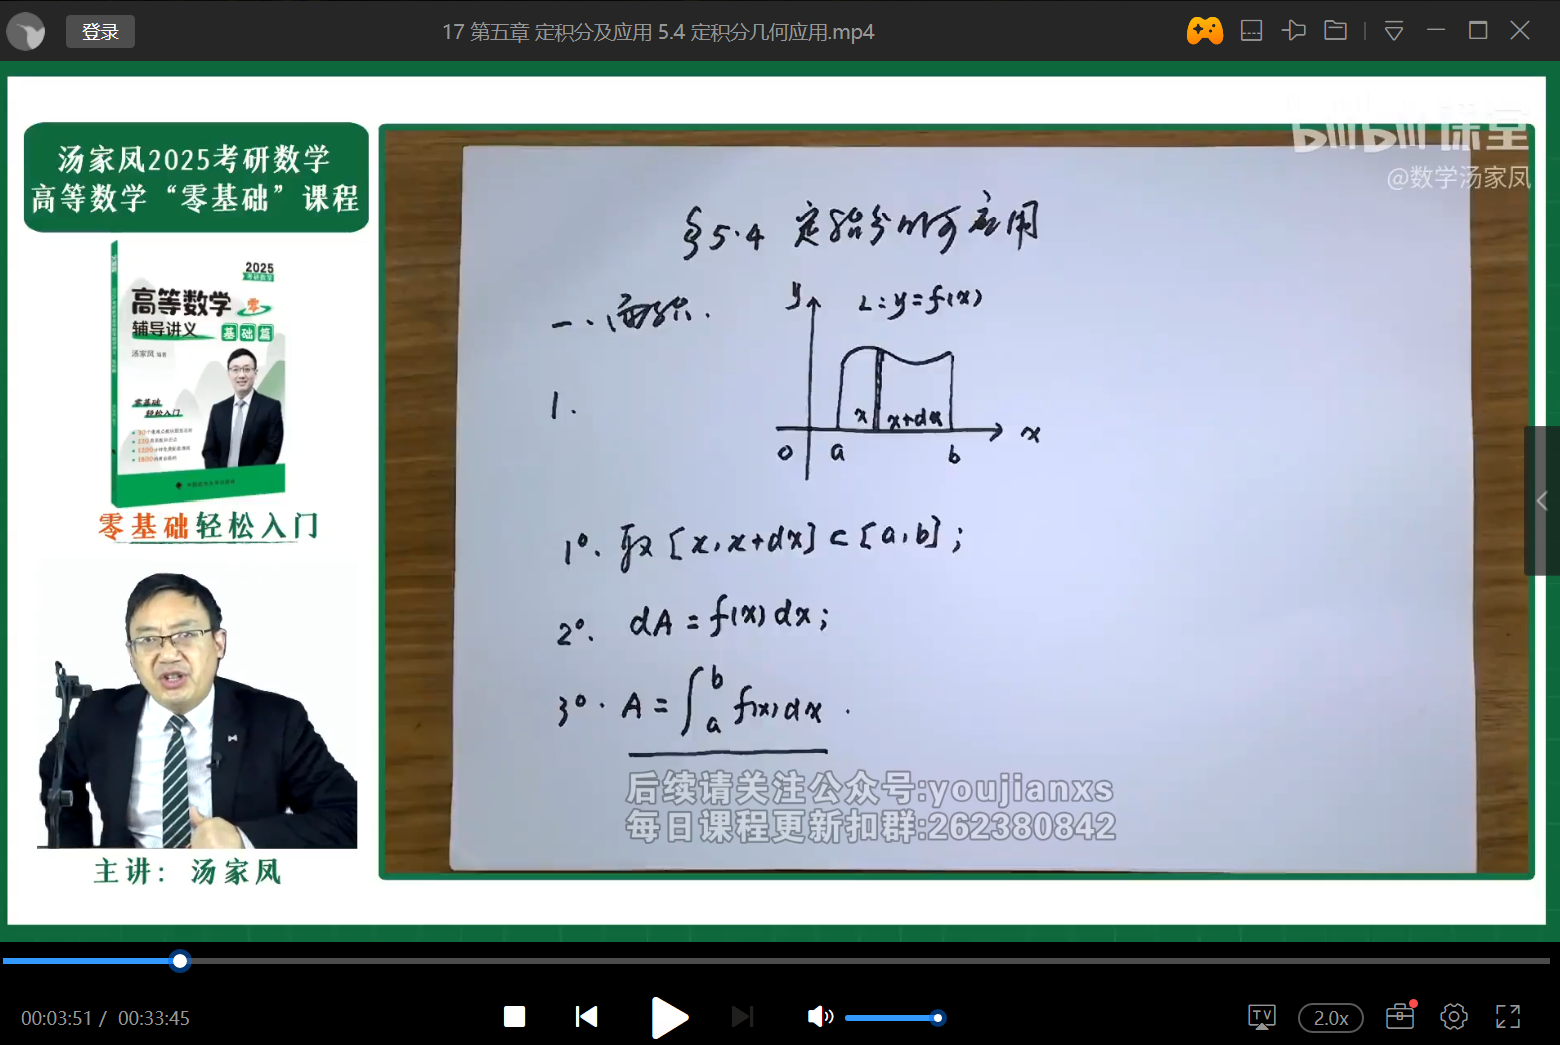 登录
17 第五章 定积分及应用 5.4 定积分几何应用.mp4
汤家凤2025考研数学
高等数学“零基础”课程
2025
高等数学 零
辅导讲义 基础篇
汤家凤
零基础
轻松入门
零基础轻松入门
主讲：汤家凤
bilibili课堂
@数学汤家凤
§5.4 定积分几何应用
一、面积.
y
L: y=f(x)
1.
x x+dx
0 a b x
1°. 取[x, x+dx]⊂[a,b];
2°. dA=f(x)dx;
3°. A=∫_a^b f(x)dx.
后续请关注公众号:youjianxs
每日课程更新扣群:262380842
00:03:51 / 00:33:45
TV
2.0x